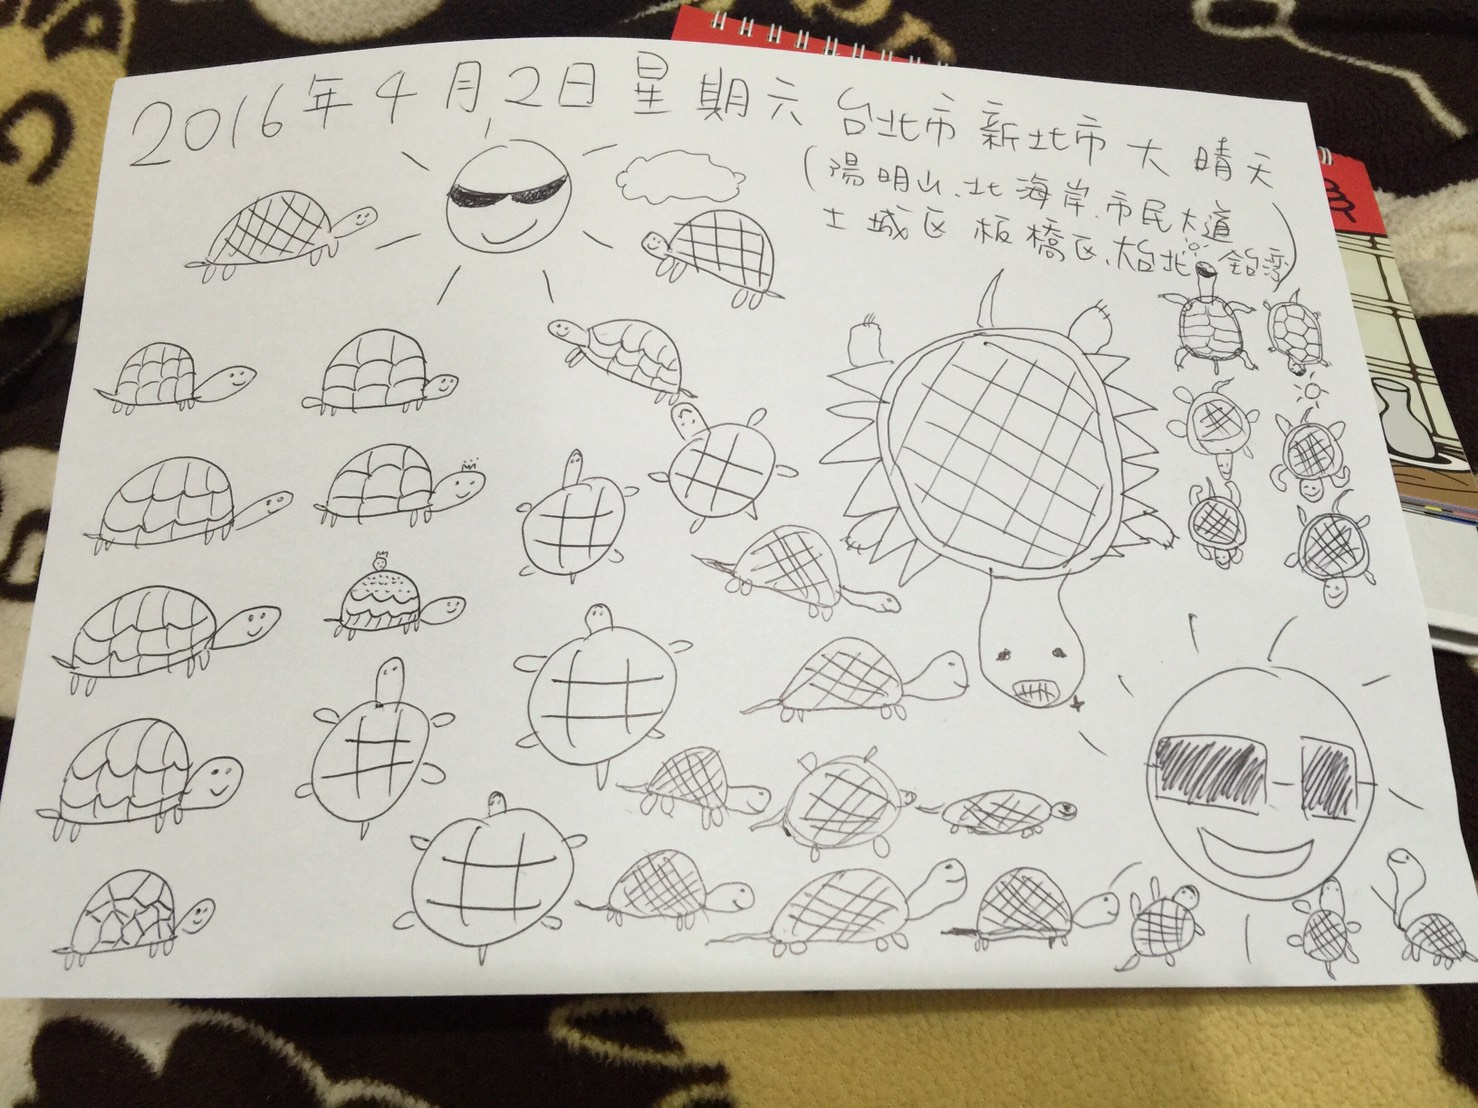 2016年4月2日星期六 台北市 新北市 大 晴天
(陽明山、北海岸、市民大道
土城区 板橋区、大台北 全台湾)